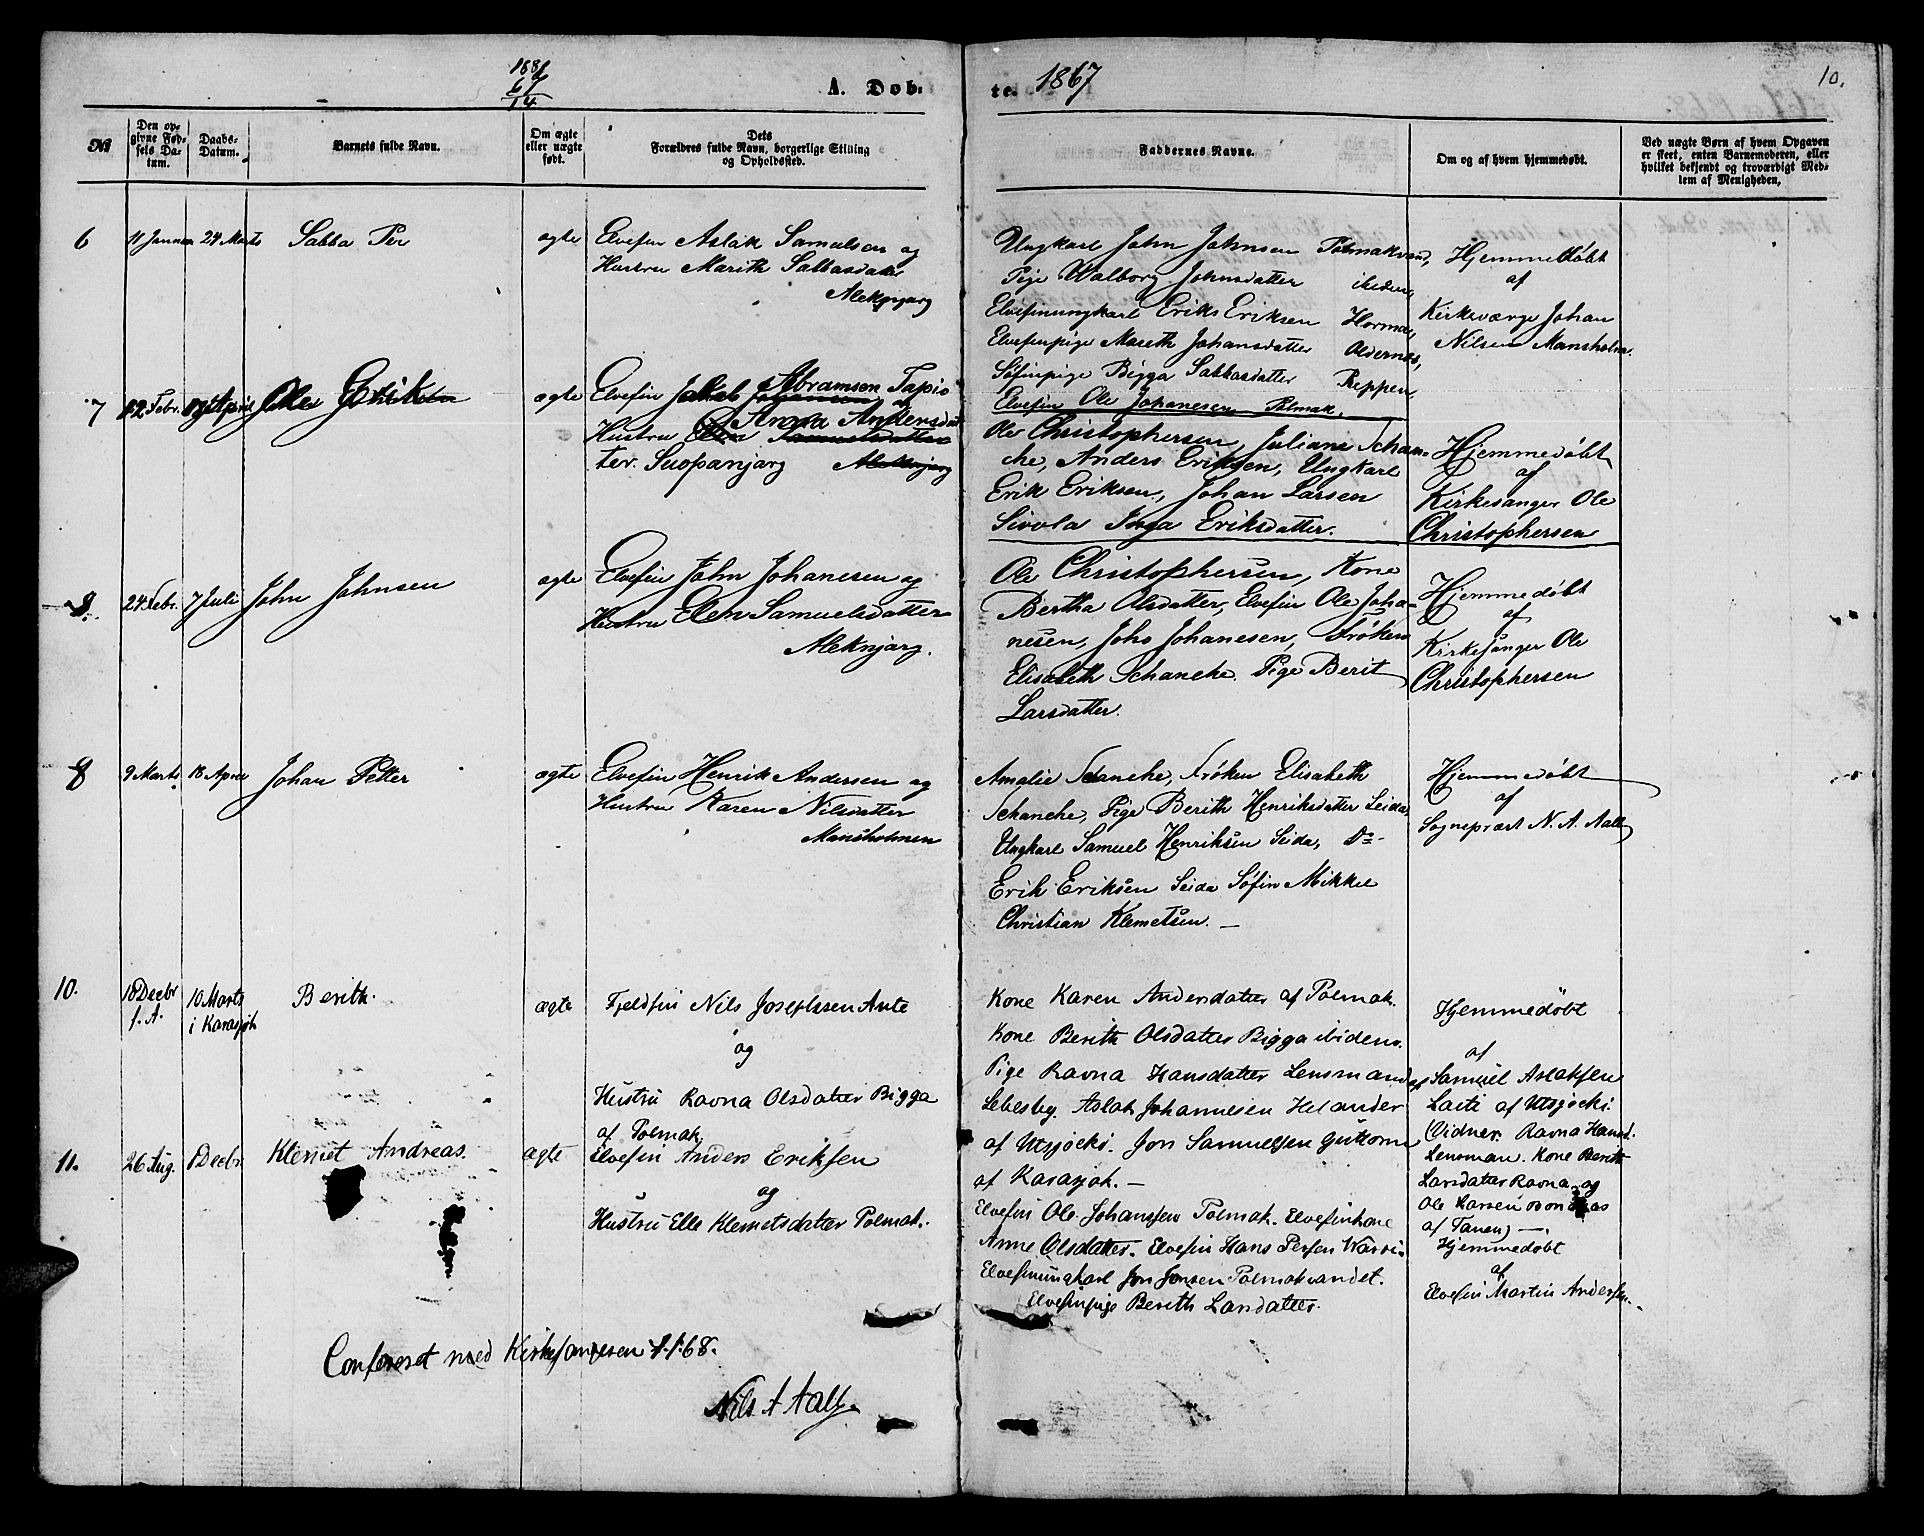 1881
67
14
A. Døb-
te.
1867
10.
No
Den op-
givne Fød-
sels Da-
tum.
Daabs-
Datum.
Barnets fulde Navn.
Om ægte
eller uægte
født.
Dets
Forældres fulde Navn, borgerlige Stilling
og Opholdssted.
Faddernes Navne.
Om og af hvem hjemmedøbt.
Ved uægte Børn af hvem Opgaven
er skeet, enten Barnemoderen, eller
hvilket bekjendt og troværdigt Med-
lem af Menigheden,
6
11 Januar
24 Marts
Sabba Per
ægte
Elvefin Aslak Samuelsen og
Hustru Marith Sabbasdatter
Aleknjarg
Ungkarl John Johnsen Polmakvand,
Pige Walborg Johnsdatter ibidem,
Elvefinungkarl Eriks Eriksen Horma,
Elvefinpige Mareth Johansdatter Oldernæs,
Søfinpige Bigga Sabbasdatter Reppen,
Elvefin Ole Johanesen Polmak.
Hjemmedøbt
af
Kirkeværge Johan
Nilsen Mansholm.
7
12 Febr.
April
Ole
ægte
Elvefin Jakob Abramsen Tapio
Hustru Anna Andersdat
ter. Suopanjarg Aleknjarg
Ole Christophersen, Juliane Schan-
che, Anders Eriksen, Ungkarl
Erik Eriksen, Johan Larsen
Sivola Inga Eriksdatter.
Hjemmedøbt
af
Kirkesanger Ole
Christophersen
9.
24 Febr.
7 Juli
John Johnsen
ægte
Elvefin John Johanesen og
Hustru Elen Samuelsdatter
Aleknjarg.
Ole Christophersen, Kone
Bertha Olsdatter, Elvefin Ole Joha-
nesen, Johs Johanesen, Frøken
Elisabeth Schanche. Pige Berit
Larsdatter.
Hjemmedøbt
af
Kirkesanger Ole
Christophersen
8
9 Marts
18 April
Johan Petter
ægte
Elvefin Henrik Andersen og
Hustru Karen Nilsdatter
Mansholmen
Amalie Schanche, Frøken Elisabeth
Schanche, Pige Berith Henriksdatter Seida,
Ungkarl Samuel Henriksen Seida, Do
Erik Eriksen Seida Søfin Mikkel
Christian Klemetsen. —
Hjemmedøbt
af
Sogneprest N. A. Aall
10.
10 Decbr
f. A.
10 Marts
i Karasjok
Berith.
ægte
Fjeldfin Nils Josephsen Ante
og
Hustru Ravna Olsdatter Bigga
af Polmak
Kone Karen Andersdatter af Polmak.
Kone Berith Olsdatter Bigga ibidem.
Pige Ravna Hansdatter Lensmand af
Lebesby. Aslak Johannesen Helander
af Utsjocki. Jon Samuelsen Guttorm
af Karasjok. —
Hjemmedøbt
af
Samuel Aslaksen
Laiti af Utsjocki.
(Vidner. Ravna Hansd.
Lensman. Kone Berith
Larsdatter Ravna, og
Ole Larsen Bonakas
af Tanen) —.
11.
26 Aug.
1 Decbr
Klemet Andreas.
ægte
Elvefin Anders Eriksen
og
Hustru Elle Klemetsdatter Polmak.
Elvefin Ole Johanssen Polmak. Elvefinkone
Anne Olsdatter. Elvefin Hans Persen Warsi.
Elvefinungkarl Jon Jonsen Polmakvandet.
Elvefinpige Berith Larsdatter.
Hjemmedøbt
af
Elvefin Martin Andersen.
Confereret med Kirkesangeren 1.1.68.
Nils A Aall.